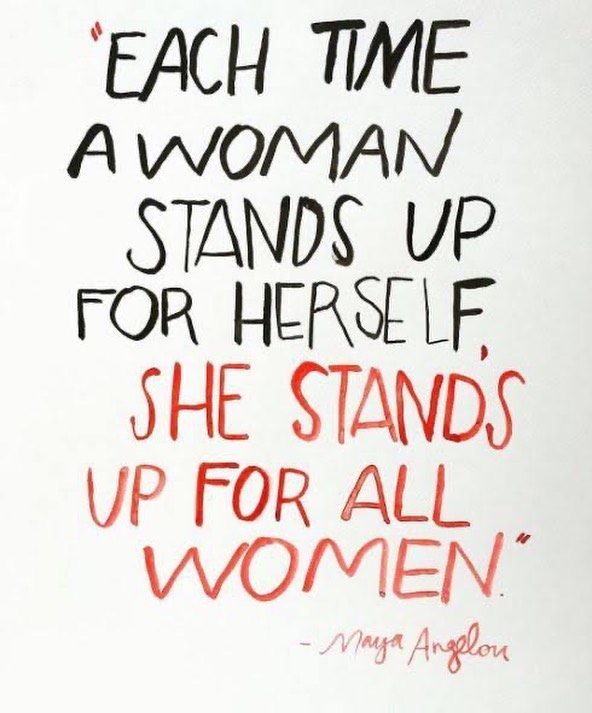 "EACH TIME
A WOMAN
STANDS UP
FOR HERSELF,
SHE STANDS
UP FOR ALL
WOMEN."
- Maya Angelou